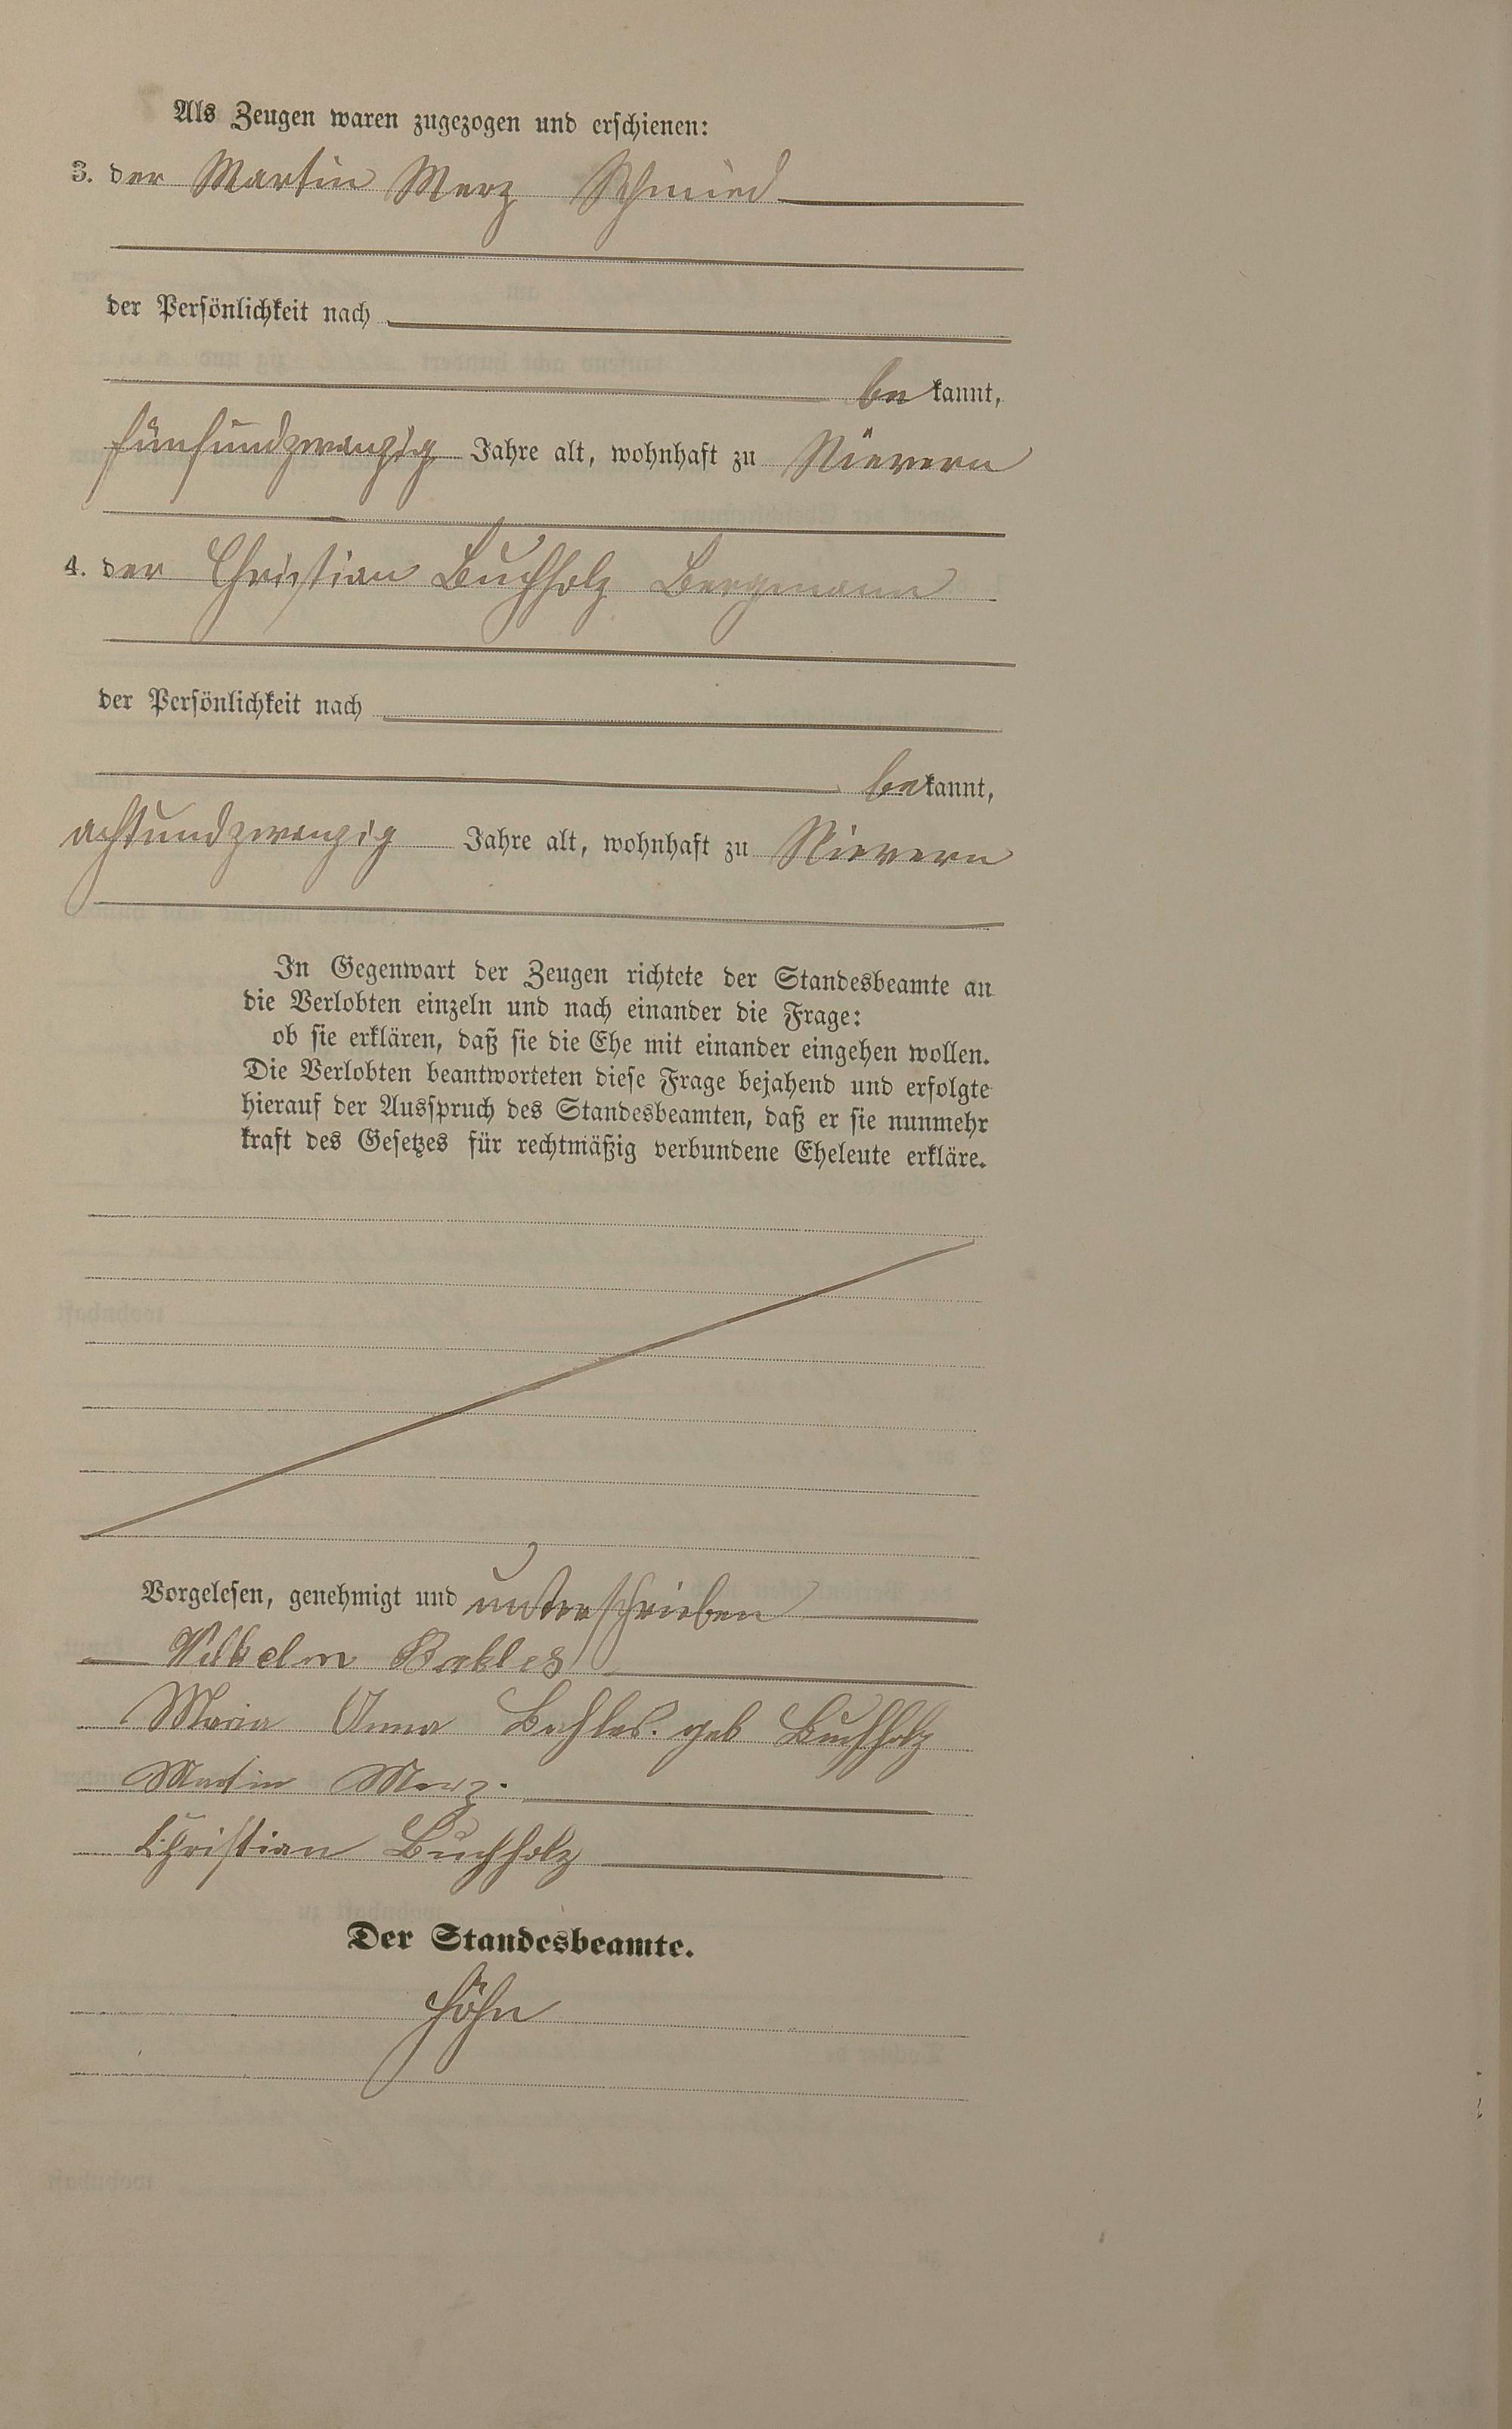 Als Zeugen waren zugezogen und erschienen:
3. der Martin Merz Schmied
der Persönlichkeit nach
bekannt,
fünfundzwanzig Jahre alt, wohnhaft zu Nievern
4. der Christian Buchholz Bergmann
der Persönlichkeit nach
bekannt,
achtundzwanzig Jahre alt, wohnhaft zu Nievern
In Gegenwart der Zeugen richtete der Standesbeamte an
die Verlobten einzeln und nach einander die Frage:
ob sie erklären, daß sie die Ehe mit einander eingehen wollen.
Die Verlobten beantworteten diese Frage bejahend und erfolgte
hierauf der Ausspruch des Standesbeamten, daß er sie nunmehr
kraft des Gesetzes für rechtmäßig verbundene Eheleute erkläre.
Vorgelesen, genehmigt und unterschrieben
Wilhelm Bahles
Maria Anna Bahles. geb Buchholz
Martin Merz.
Christian Buchholz
Der Standesbeamte.
Höhn